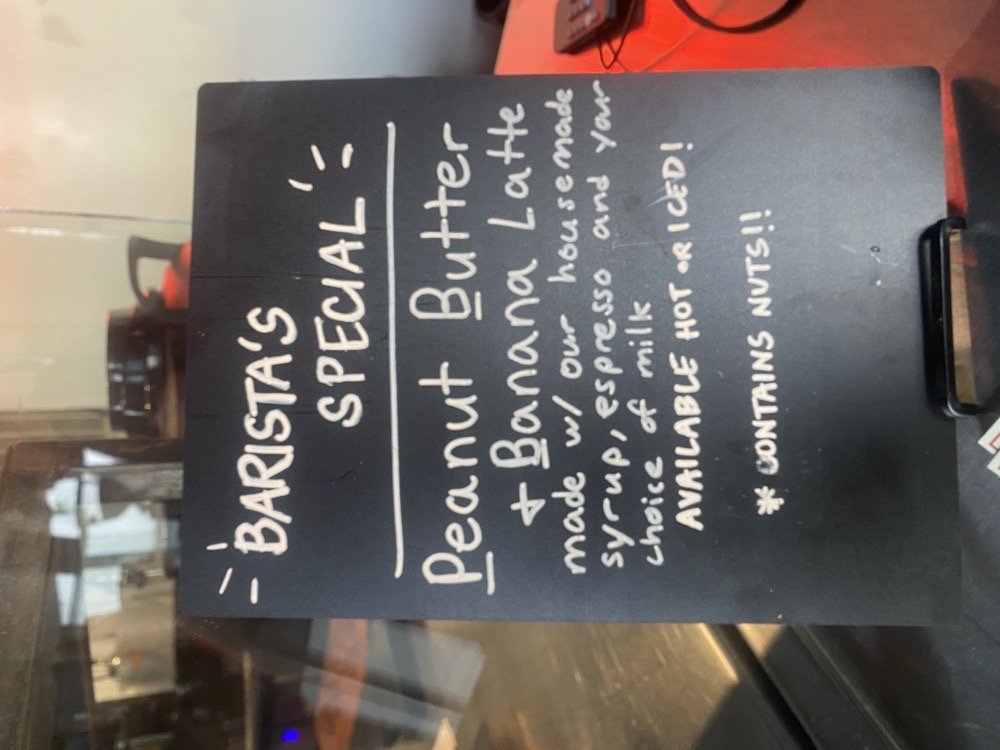 BARISTA'S
SPECIAL
Peanut Butter
+ Banana Latte
made w/ our housemade
syrup, espresso and your
choice of milk
AVAILABLE HOT OR ICED!
* CONTAINS NUTS!!